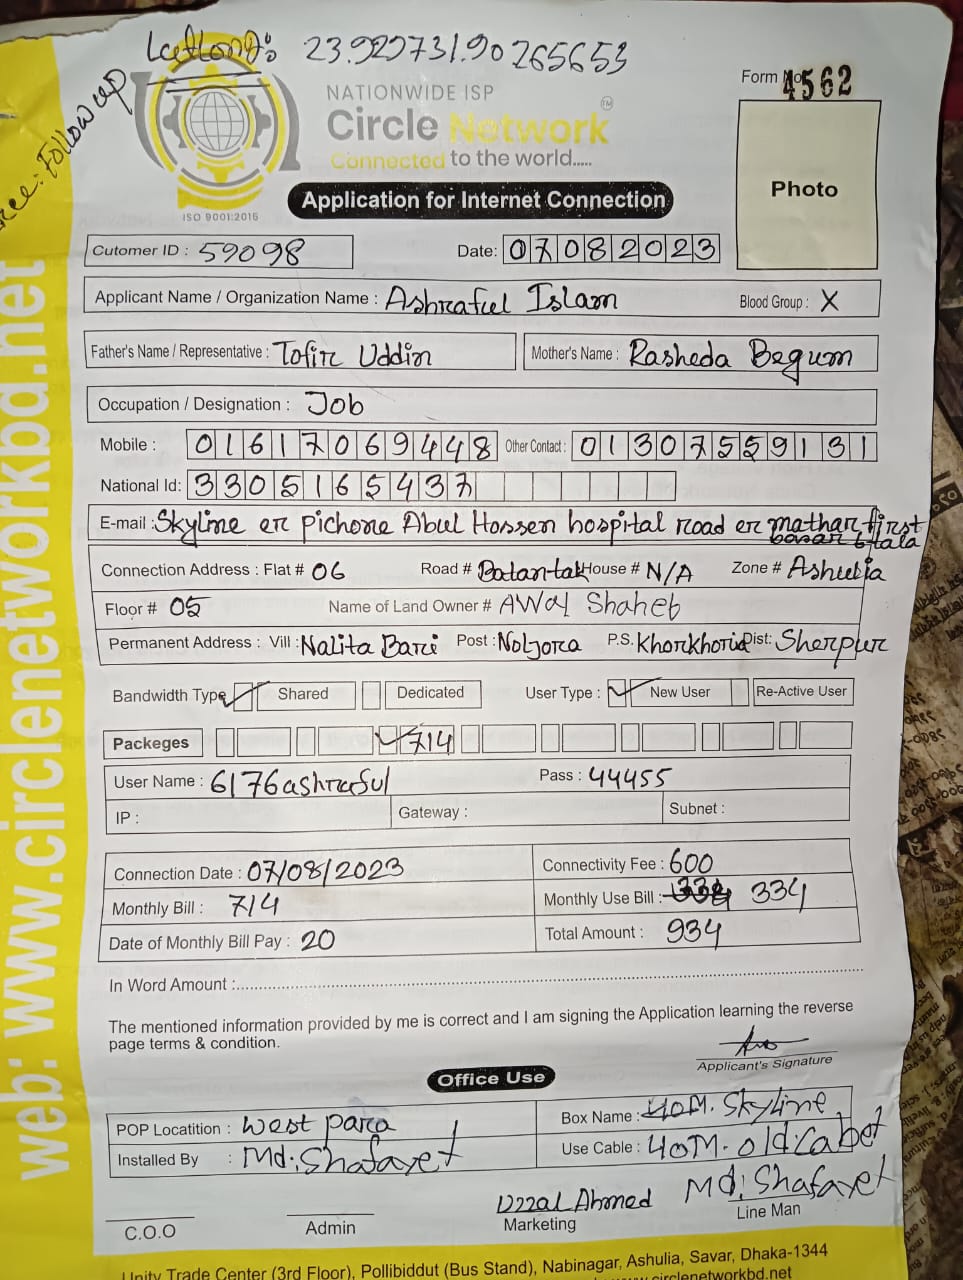 LatLong: 23.929731.90265653
Follow up
Form No 4562
NATIONWIDE ISP
Circle Network
TM
Connected to the world.....
ISO 9001:2015
Photo
Application for Internet Connection
Cutomer ID : 59098 Date: 07082023
Applicant Name / Organization Name : Ashraful Islam Blood Group : X
Father's Name / Representative : Tofir Uddin Mother's Name : Rasheda Begum
Occupation / Designation : Job
Mobile : 01617069448 Other Contact : 01307559131
National Id: 3305165437
E-mail : Skyline er pichone Abul Hossen hospital road er mathar first
Connection Address : Flat # 06 Road # Batantak House # N/A Zone # Ashulia
Floor # 05 Name of Land Owner # AWal Shaheb
Permanent Address : Vill : Nalita Bari Post : Noljora P.S. Khorkhoria Dist: Sherpur
Bandwidth Type Shared Dedicated User Type : New User Re-Active User
Packeges 714
User Name : 6176ashraful Pass : 44455
IP : Gateway : Subnet :
Connection Date : 07/08/2023 Connectivity Fee : 600
Monthly Bill : 714 Monthly Use Bill : 334
Date of Monthly Bill Pay : 20 Total Amount : 934
In Word Amount :
The mentioned information provided by me is correct and I am signing the Application learning the reverse
page terms & condition.
Applicant's Signature
Office Use
POP Locatition : West para Box Name : 40M. Skyline
Installed By : Md: Shafayet Use Cable : 40M. old cabel
Uzzal Ahmed Md: Shafayet
C.O.O Admin Marketing Line Man
Unity Trade Center (3rd Floor), Pollibiddut (Bus Stand), Nabinagar, Ashulia, Savar, Dhaka-1344
circlenetworkbd.net
web: www.circlenetworkbd.net